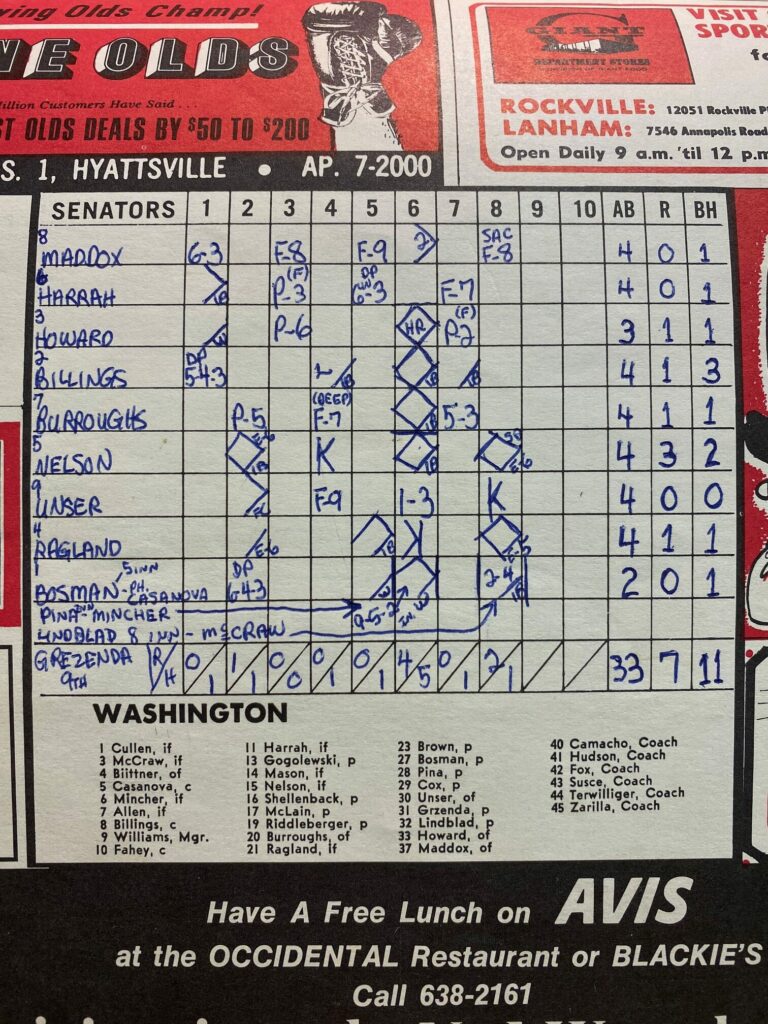 ving Olds Champ!
NE OLDS
illion Customers Have Said . . .
ST OLDS DEALS BY $50 TO $200
S. 1, HYATTSVILLE • AP. 7-2000
GIANT
DEPARTMENT STORES
VISIT
SPOR
fo
ROCKVILLE: 12051 Rockville P
LANHAM: 7546 Annapolis Road
Open Daily 9 a.m. 'til 12 p.m
SENATORS 1 2 3 4 5 6 7 8 9 10 AB R BH
8 MADDOX 6-3 F-8 F-9 2 SAC F-8 4 0 1
6 HARRAH 1B P-3 (F) DP 6-3 F-7 4 0 1
3 HOWARD W P-6 HR P-2 (F) 3 1 1
2 BILLINGS DP 5-4-3 1B 1B 1B 4 1 3
7 BURROUGHS P-5 (DEEP) F-7 1B 5-3 4 1 1
5 NELSON E-6 1B K 1B E-6 4 3 2
9 UNSER F-9 1-3 K 4 0 0
4 RAGLAND E-6 1B K E-5 4 1 1
1 BOSMAN 5 INN - PH. CASANOVA DP 6-4-3 W 9-5-2 IN. W 2-4 1B 2 0 1
PINA - MINCHER
LINDBLAD 8 INN - McCRAW
GREZENDA 9TH R/H 0/1 1/1 0/0 0/1 0/1 4/5 0/1 2/1 33 7 11
WASHINGTON
1 Cullen, if
3 McCraw, if
4 Biittner, of
5 Casanova, c
6 Mincher, if
7 Allen, if
8 Billings, c
9 Williams, Mgr.
10 Fahey, c
11 Harrah, if
13 Gogolewski, p
14 Mason, if
15 Nelson, if
16 Shellenback, p
17 McLain, p
19 Riddleberger, p
20 Burroughs, of
21 Ragland, if
23 Brown, p
27 Bosman, p
28 Pina, p
29 Cox, p
30 Unser, of
31 Grzenda, p
32 Lindblad, p
33 Howard, of
37 Maddox, of
40 Camacho, Coach
41 Hudson, Coach
42 Fox, Coach
43 Susce, Coach
44 Terwilliger, Coach
45 Zarilla, Coach
Have A Free Lunch on AVIS
at the OCCIDENTAL Restaurant or BLACKIE'S
Call 638-2161